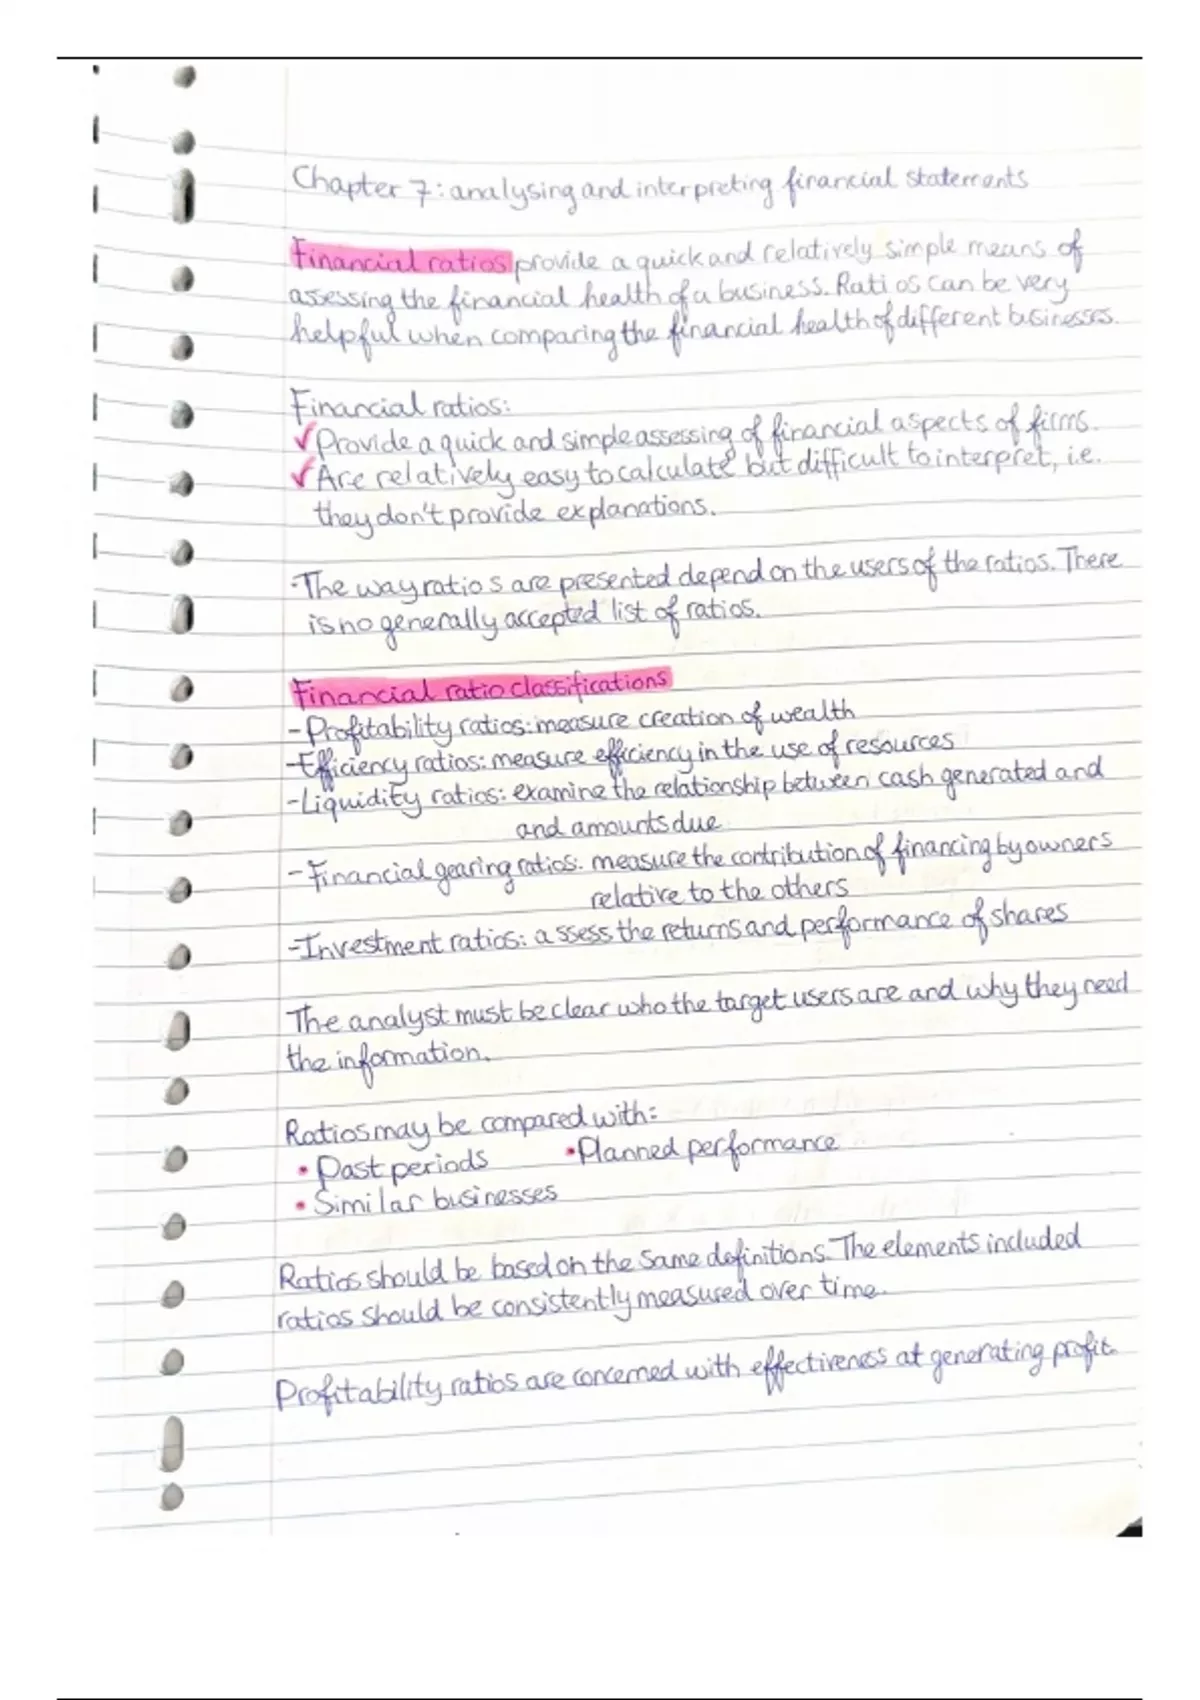 Chapter 7: analysing and interpreting financial statements
Financial ratios provide a quick and relatively simple means of
assessing the financial health of a business. Ratios can be very
helpful when comparing the financial health of different businesses.
Financial ratios:
✓ Provide a quick and simple assessing of financial aspects of firms.
✓ Are relatively easy to calculate but difficult to interpret, i.e.
they don't provide explanations.
-The way ratios are presented depend on the users of the ratios. There
is no generally accepted list of ratios.
Financial ratio classifications
-Profitability ratios: measure creation of wealth
-Efficiency ratios: measure efficiency in the use of resources
-Liquidity ratios: examine the relationship between cash generated and
and amounts due
-Financial gearing ratios: measure the contribution of financing by owners
relative to the others
-Investment ratios: assess the returns and performance of shares
The analyst must be clear who the target users are and why they need
the information.
Ratios may be compared with:
• Past periods • Planned performance
• Similar businesses
Ratios should be based on the same definitions. The elements included
ratios should be consistently measured over time.
Profitability ratios are concerned with effectiveness at generating profit.